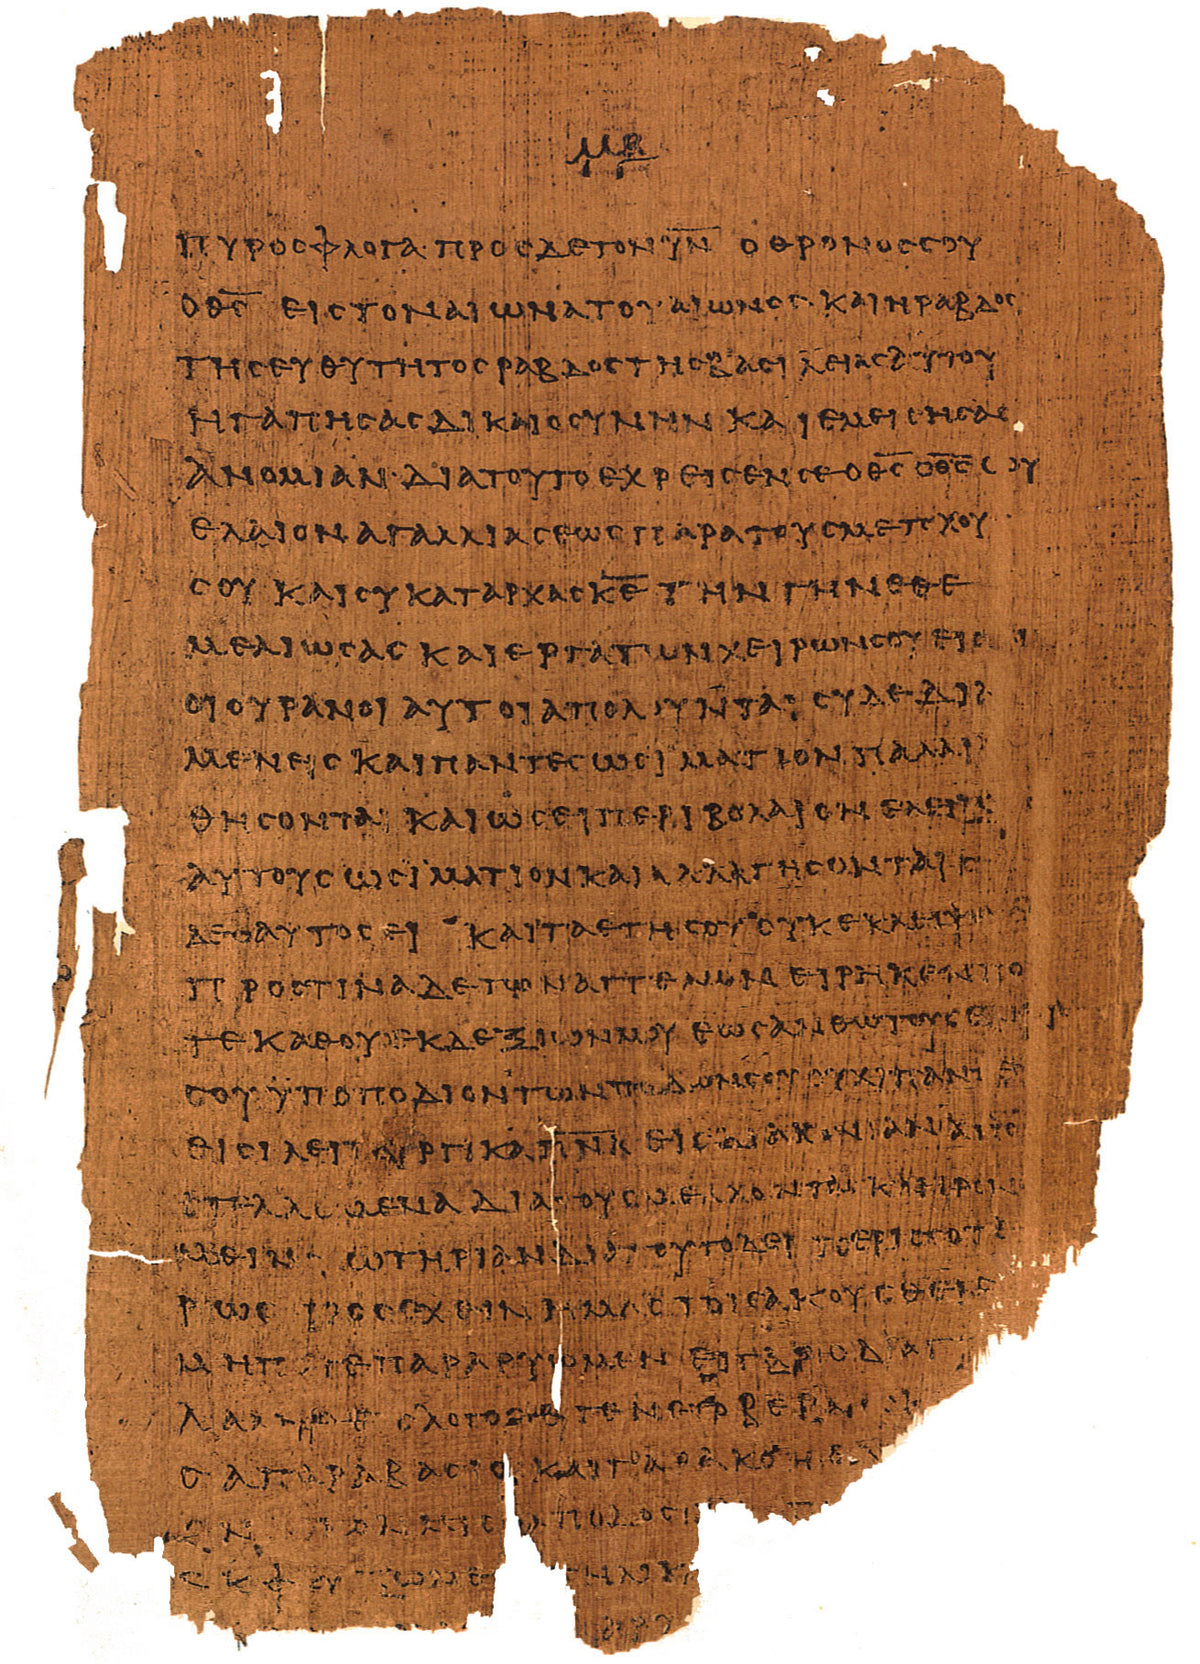 μβ
ΠΥΡΟϹΦΛΟΓΑ·ΠΡΟϹΔΕΤΟΝΥ̅Ν̅ ΟΘΡΟΝΟϹϹΟΥ
ΟΘ̅Ϲ̅ ΕΙϹΤΟΝΑΙΩΝΑΤΟΥΑΙΩΝΟϹ· ΚΑΙΗΡΑΒΔΟϹ
ΤΗϹΕΥΘΥΤΗΤΟϹΡΑΒΔΟϹΤΗϹΒΑϹΙΛΕΙΑϹΑΥΤΟΥ
ΗΓΑΠΗϹΑϹΔΙΚΑΙΟϹΥΝΗΝ ΚΑΙΕΜΕΙϹΗϹΑϹ
ΑΝΟΜΙΑΝ·ΔΙΑΤΟΥΤΟΕΧΡΕΙϹΕΝϹΕΟΘ̅Ϲ̅ ΟΘ̅Ϲ̅ϹΟΥ
ΕΛΑΙΟΝΑΓΑΛΛΙΑϹΕΩϹΠΑΡΑΤΟΥϹΜΕΤΟΧΟΥ
ϹΟΥ ΚΑΙϹΥΚΑΤΑΡΧΑϹΚ̅Ε̅ ΤΗΝΓΗΝΕΘΕ
ΜΕΛΙΩϹΑϹ ΚΑΙΕΡΓΑΤΩΝΧΕΙΡΩΝϹΟΥΕΙϹΙ
ΟΙΟΥΡΑΝΟΙ ΑΥΤΟΙΑΠΟΛΟΥΝΤΑΙ ϹΥΔΕΔΙΑ
ΜΕΝΕΙϹ ΚΑΙΠΑΝΤΕϹΩϹΙΜΑΤΙΟΝΠΑΛΑΙ
ΘΗϹΟΝΤΑΙ ΚΑΙΩϹΕΙΠΕΡΙΒΟΛΑΙΟΝΕΛΕΙΞ
ΑΥΤΟΥϹΩϹΙΜΑΤΙΟΝΚΑΙΑΛΛΑΓΗϹΟΝΤΑΙϹ
ΔΕΟΑΥΤΟϹΕΙ ΚΑΙΤΑΕΤΗϹΟΥΟΥΚΕΚΛΕΙΨ
ΠΡΟϹΤΙΝΑΔΕΤΩΝΑΓΓΕΛΩΝΕΙΡΗΚΕΝΠΟ
ΤΕΚΑΘΟΥΕΚΔΕΞΙΩΝΜΟΥΕΩϹΑΝΘΩΤΟΥϹΕΧΘΡ
ϹΟΥΥΠΟΠΟΔΙΟΝΤΩΝΠΟΔΩΝϹΟΥΟΥΧΙΠΑΝΤΕ
ΘΙϹΙΛΕΙΤΟΥΡΓΙΚΑΠ̅Ν̅Α̅ΕΙϹΔΙΑΚΟΝΙΑΝ
ϹΤΕΛΛΟΜΕΝΑΔΙΑΤΟΥϹΜΕΛΛΟΝΤΑϹΚΛΗΡΟΝ
ΜΕΙΝ ΩΤΗΡΙΑΝΔΙΑΤΟΥΤΟΔΕΙΠΕΡΙϹϹΟΤΕ
ΡΩϹ ΠΡΟϹΕΧΕΙΝΗΜΑϹΤΟΙϹΑΚΟΥϹΘΕΙϹ
ΜΗΠΟΤΕΠΑΡΑΡΥΩΜΕΝ ΕΙΓΑΡΟΔΙΑΓΓ
ΛΑΛΗΘΕΙϹΛΟΓΟϹΕΓΕΝΕΤΟΒΕΒΑΙ
ϹΑΠΑΡΑΒΑϹΙϹ ΚΑΙΠΑΡΑΚΟΗΕ